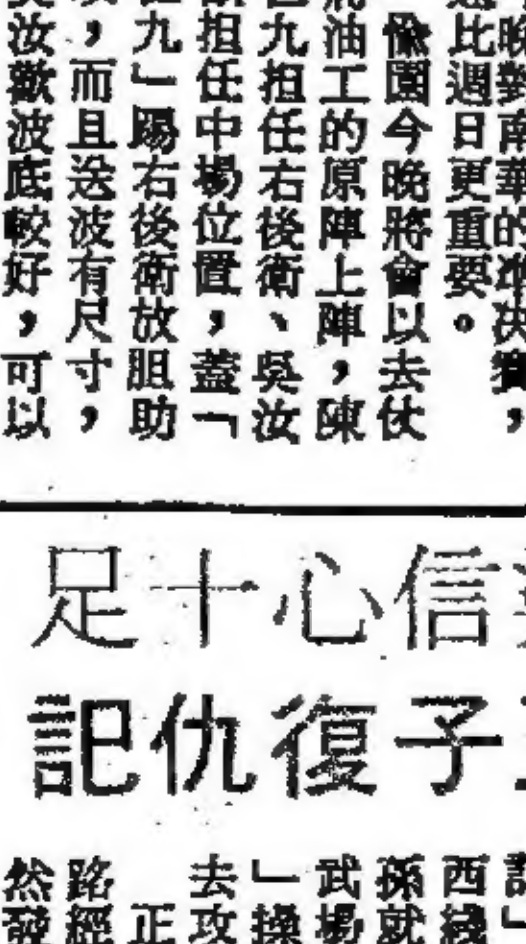 晚對南華的準決賽，
比週日更重要。
愉園今晚將會以去仗
油工的原陣上陣，陳
九担任右後衛、吳汝
担任中場位置，蓋「
九」踢右後衛放胆助
，而且送波有尺寸，
汝歡波底較好，可以
信心十足
子復仇記
西綫
孫就
武場
」操
去攻
正
路經
然發